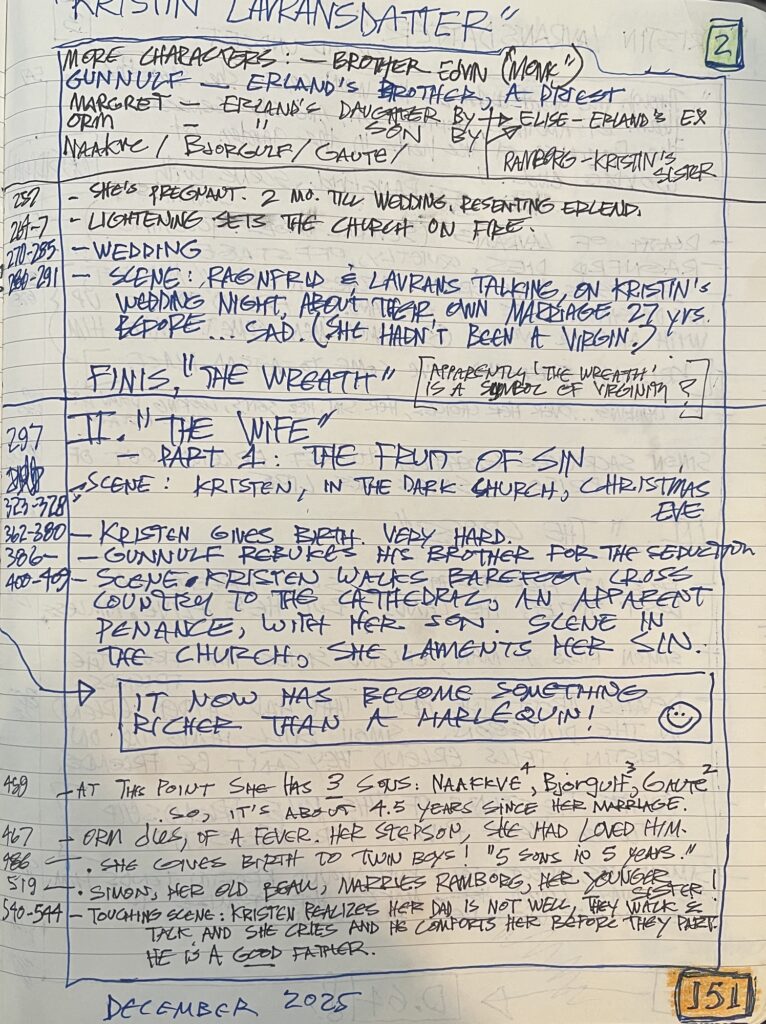 "KRISTIN LAVRANSDATTER"
2
MORE CHARACTERS: — BROTHER EDVIN ("MONK")
GUNNULF — ERLAND'S BROTHER, A PRIEST
MARGRET — ERLAND'S DAUGHTER BY → ELISE - ERLAND'S EX
ORM — " SON BY
NAAKVE / BJORGULF / GAUTE /
RAMBORG - KRISTIN'S SISTER
257 - SHE'S PREGNANT. 2 MO. TILL WEDDING, RESENTING ERLEND.
264-7 - LIGHTENING SETS THE CHURCH ON FIRE.
270-285 - WEDDING
286-291 - SCENE: RAGNFRID & LAVRANS TALKING, ON KRISTIN'S
WEDDING NIGHT, ABOUT THEIR OWN MARRIAGE 27 yrs.
BEFORE... SAD. (SHE HADN'T BEEN A VIRGIN.)
FINIS, "THE WREATH"
APPARENTLY 'THE WREATH'
IS A SYMBOL OF VIRGINITY?
297 II. "THE WIFE"
- PART 1: THE FRUIT OF SIN
323-328 - SCENE: KRISTEN, IN THE DARK CHURCH, CHRISTMAS
EVE
362-380 - KRISTEN GIVES BIRTH. VERY HARD.
386- - GUNNULF REBUKES HIS BROTHER FOR THE SEDUCTION
400-409 - SCENE. KRISTEN WALKS BAREFOOT CROSS
COUNTRY TO THE CATHEDRAL, AN APPARENT
PENANCE, WITH HER SON. SCENE IN
THE CHURCH, SHE LAMENTS HER SIN.
IT NOW HAS BECOME SOMETHING
RICHER THAN A HARLEQUIN!
459 - AT THIS POINT SHE HAS 3 SONS: NAAKKVE 4, BJORGULF 3, GAUTE 2
SO, IT'S ABOUT 4.5 YEARS SINCE HER MARRIAGE.
467 - ORM DIES, OF A FEVER. HER STEPSON, SHE HAD LOVED HIM.
486 - . SHE GIVES BIRTH TO TWIN BOYS! "5 SONS IN 5 YEARS."
519 - . SIMON, HER OLD BEAU, MARRIES RAMBORG, HER YOUNGER SISTER!
540-544 - TOUCHING SCENE: KRISTEN REALIZES HER DAD IS NOT WELL, THEY WALK &
TALK AND SHE CRIES AND HE COMFORTS HER BEFORE THEY PART.
HE IS A GOOD FATHER.
DECEMBER 2025
151